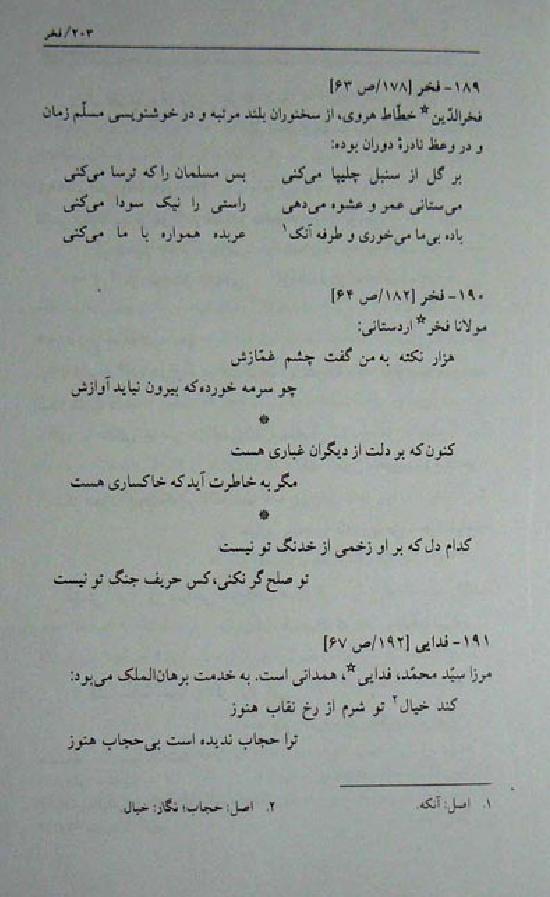 ۲۰۳/فخر
۱۸۹- فخر [۱۷۸/ص ۶۳]
فخرالدّین* خطّاط هروی، از سخنوران بلند مرتبه و در خوشنویسی مسلّم زمان
و در وعظ نادرهٔ دوران بوده:
بر گل از سنبل چلیپا می‌کنی بس مسلمان را که ترسا می‌کنی
می‌ستانی عمر و عشوه می‌دهی راستی را نیک سودا می‌کنی
باده بی‌ما می‌خوری و طرفه آنک۱ عربده همواره با ما می‌کنی
۱۹۰- فخر [۱۸۲/ص ۶۴]
مولانا فخر* اردستانی:
هزار نکته به من گفت چشم غمّازش
چو سرمه خورده که بیرون نیاید آوازش
*
کنون که بر دلت از دیگران غباری هست
مگر به خاطرت آید که خاکساری هست
*
کدام دل که بر او زخمی از خدنگ تو نیست
تو صلح گر نکنی، کس حریف جنگ تو نیست
۱۹۱- فدایی [۱۹۲/ص ۶۷]
مرزا سیّد محمّد، فدایی*، همدانی است. به خدمت برهان‌الملک می‌بود:
کند خیال۲ تو شرم از رخ نقاب هنوز
ترا حجاب ندیده است بی‌حجاب هنوز
۱. اصل: آنکه. ۲. اصل: حجاب؛ نگار: خیال.